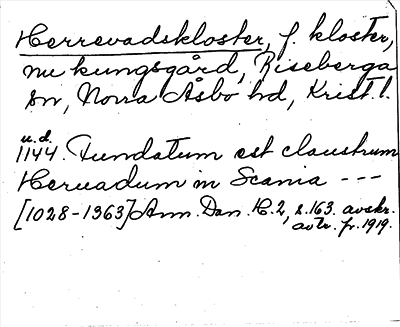 Herrevadskloster, f. kloster,
nu kungsgård, Riseberga
sn, Norra Åsbo hd, Krist. l.
u.d.
1144. Fundatum est claustrum
Heruadum in Scania ---
[1028-1363] Ann. Dan. H. 2, s. 163. avskr.
avtr. fr. 1919.